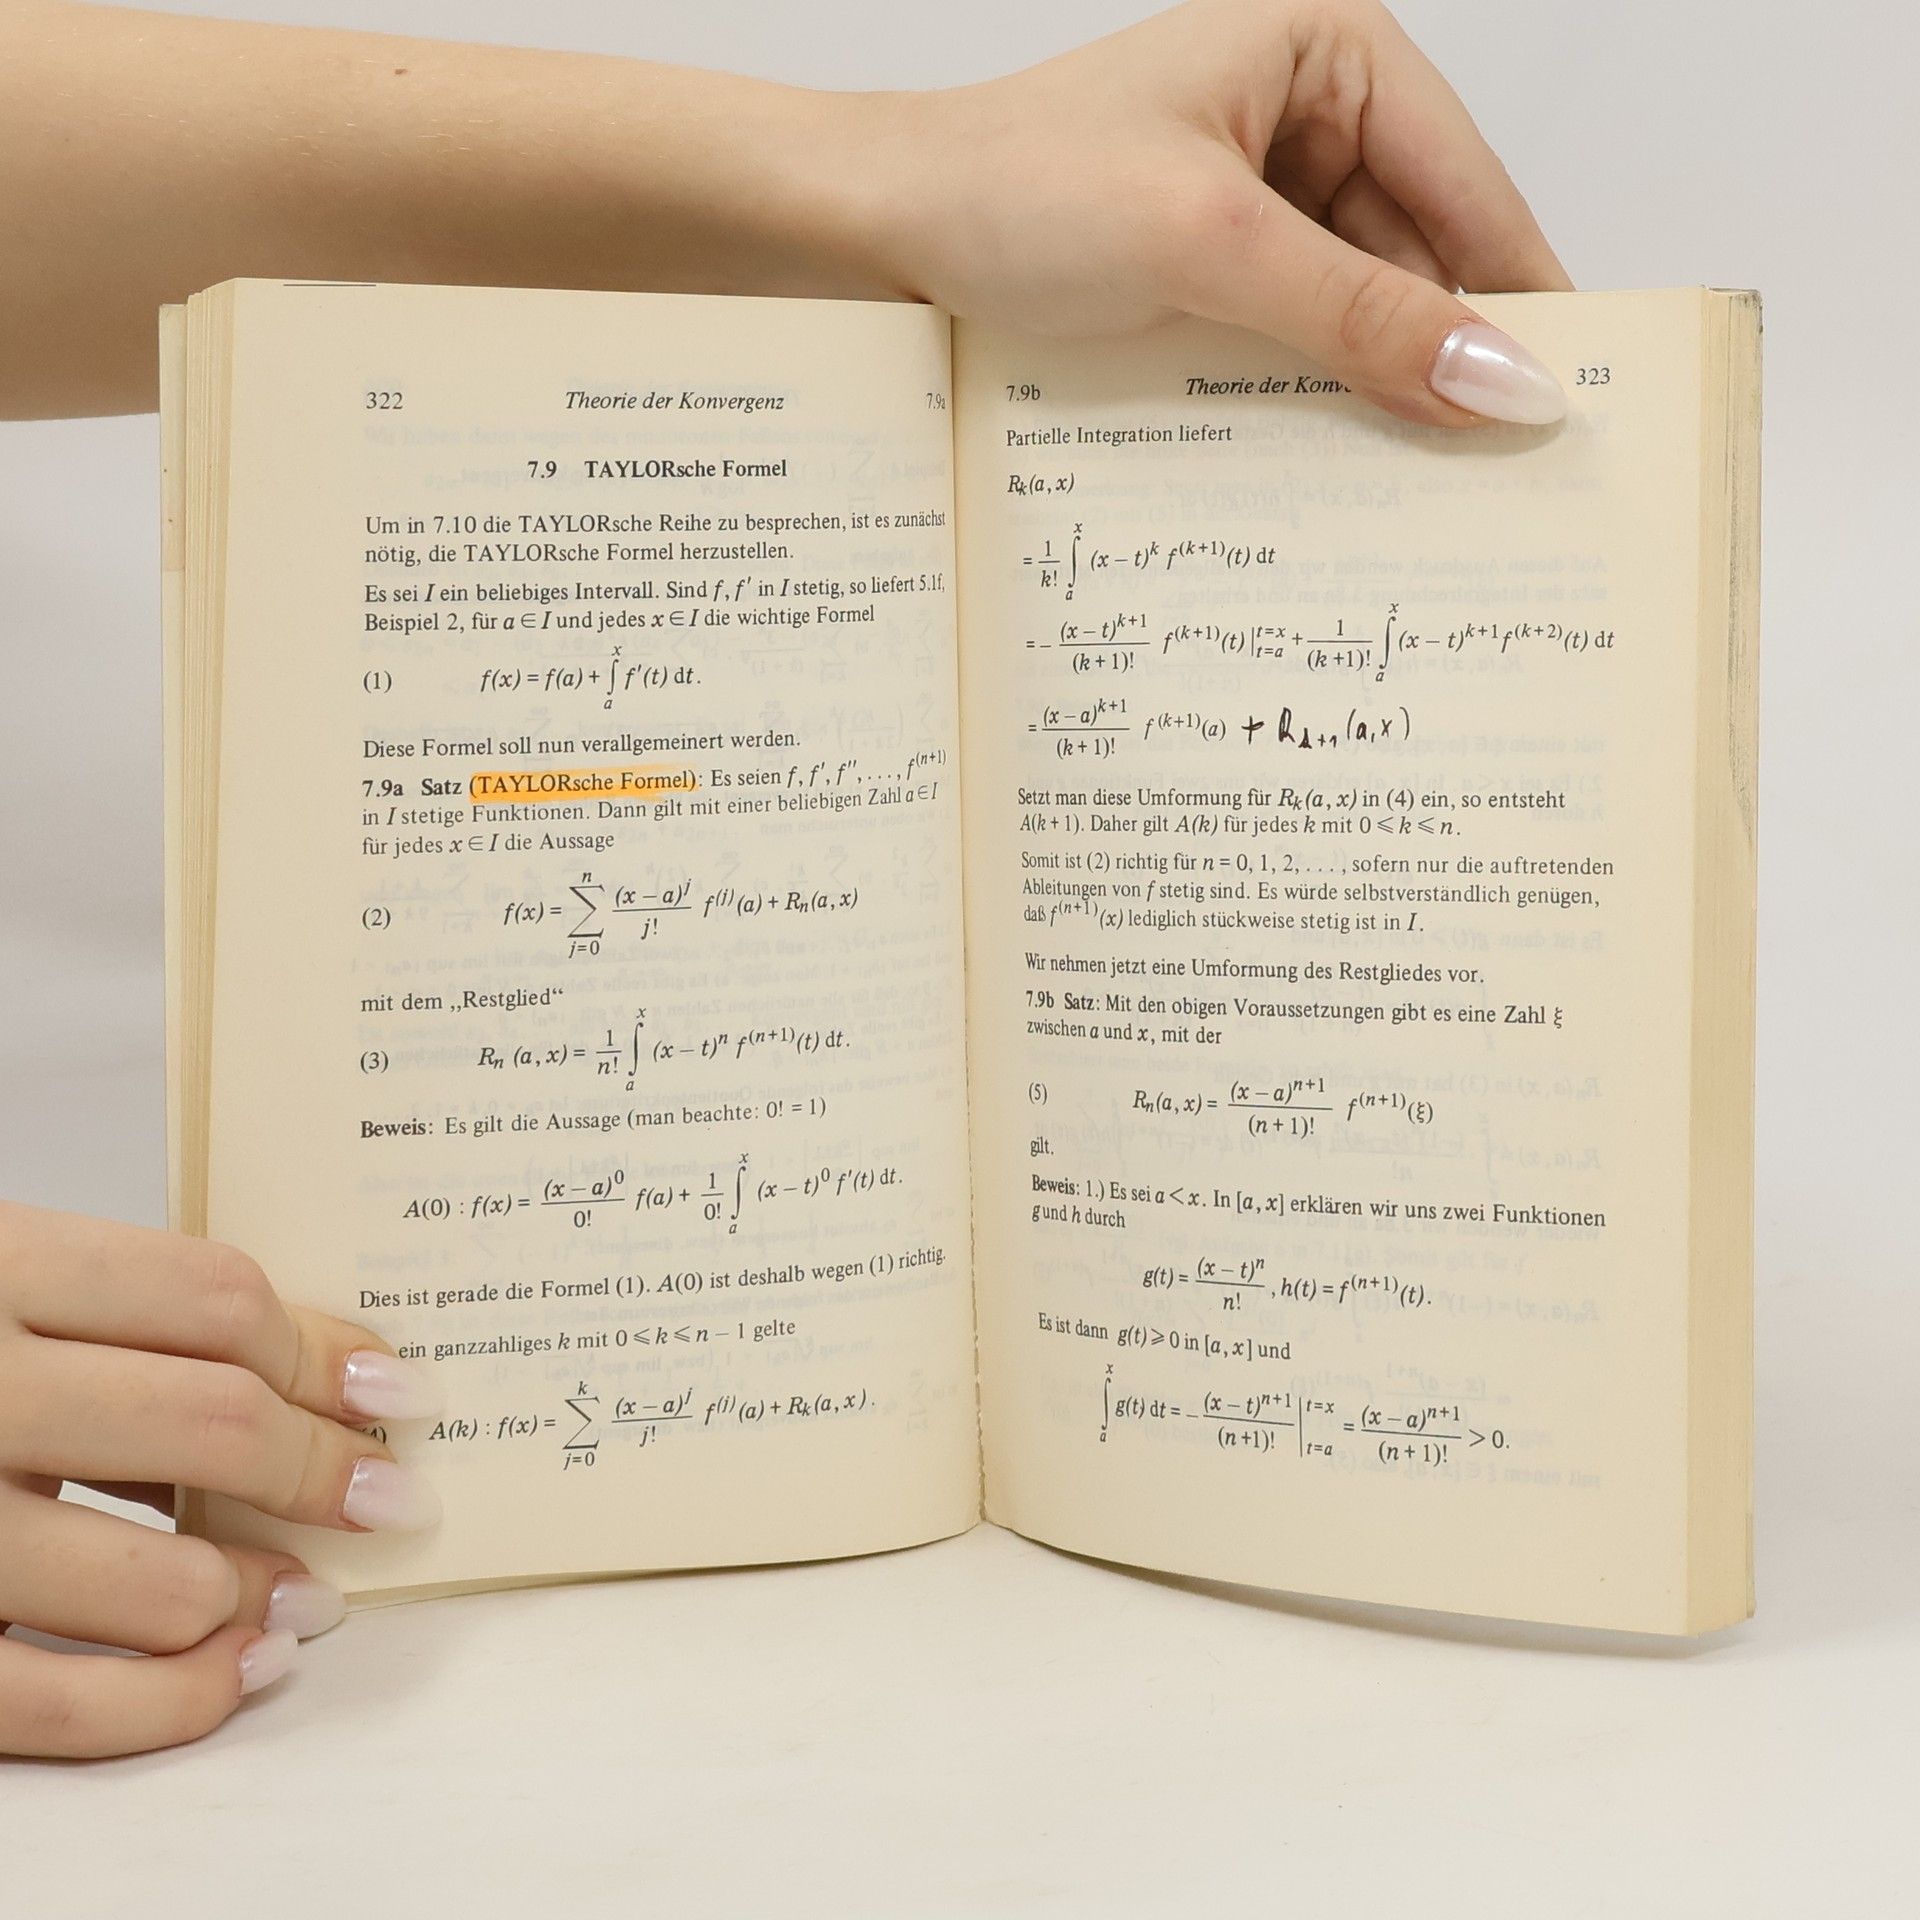 322 Theorie der Konvergenz 7.9a
7.9 TAYLORsche Formel
Um in 7.10 die TAYLORsche Reihe zu besprechen, ist es zunächst
nötig, die TAYLORsche Formel herzustellen.
Es sei I ein beliebiges Intervall. Sind f, f′ in I stetig, so liefert 5.1f,
Beispiel 2, für a ∈ I und jedes x ∈ I die wichtige Formel
(1) f(x) = f(a) + ∫_a^x f′(t) dt.
Diese Formel soll nun verallgemeinert werden.
7.9a Satz (TAYLORsche Formel): Es seien f, f′, f″, . . . , f^(n+1)
in I stetige Funktionen. Dann gilt mit einer beliebigen Zahl a ∈ I
für jedes x ∈ I die Aussage
(2) f(x) = ∑_{j=0}^n (x − a)^j / j! f^(j)(a) + R_n(a, x)
mit dem „Restglied“
(3) R_n (a, x) = 1/n! ∫_a^x (x − t)^n f^(n+1)(t) dt.
Beweis: Es gilt die Aussage (man beachte: 0! = 1)
A(0) : f(x) = (x − a)^0 / 0! f(a) + 1/0! ∫_a^x (x − t)^0 f′(t) dt.
Dies ist gerade die Formel (1). A(0) ist deshalb wegen (1) richtig.
ein ganzzahliges k mit 0 ⩽ k ⩽ n − 1 gelte
4) A(k) : f(x) = ∑_{j=0}^k (x − a)^j / j! f^(j)(a) + R_k(a, x).
7.9b Theorie der Konv 323
Partielle Integration liefert
R_k(a, x)
= 1/k! ∫_a^x (x − t)^k f^(k+1)(t) dt
= − (x − t)^{k+1} / (k + 1)! f^(k+1)(t) |_{t=a}^{t=x} + 1/(k +1)! ∫_a^x (x − t)^{k+1} f^(k+2)(t) dt
= (x − a)^{k+1} / (k + 1)! f^(k+1)(a) + R_{k+1}(a, x)
Setzt man diese Umformung für R_k(a, x) in (4) ein, so entsteht
A(k + 1). Daher gilt A(k) für jedes k mit 0 ⩽ k ⩽ n.
Somit ist (2) richtig für n = 0, 1, 2, . . . , sofern nur die auftretenden
Ableitungen von f stetig sind. Es würde selbstverständlich genügen,
daß f^(n+1)(x) lediglich stückweise stetig ist in I.
Wir nehmen jetzt eine Umformung des Restgliedes vor.
7.9b Satz: Mit den obigen Voraussetzungen gibt es eine Zahl ξ
zwischen a und x, mit der
(5) R_n(a, x) = (x − a)^{n+1} / (n + 1)! f^(n+1)(ξ)
gilt.
Beweis: 1.) Es sei a < x. In [a, x] erklären wir uns zwei Funktionen
g und h durch
g(t) = (x − t)^n / n! , h(t) = f^(n+1)(t).
Es ist dann g(t) ⩾ 0 in [a, x] und
∫_a^x g(t) dt = − (x − t)^{n+1} / (n +1)! |_{t=a}^{t=x} = (x − a)^{n+1} / (n + 1)! > 0.